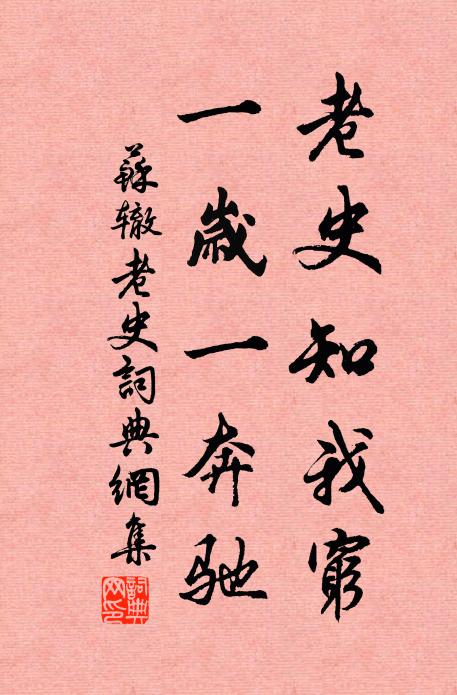 老史知我窮
一歲一奔馳
蘇辙老史詞典網集
詞典網印